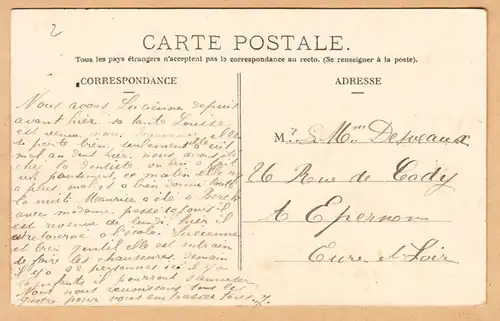 2
CARTE POSTALE.
Tous les pays étrangers n'acceptent pas la correspondance au recto. (Se renseigner à la poste).
CORRESPONDANCE
Nous avons Lucienne depuis
avant hier. sa tante Louise
est venue nous elle
se porte bien, seulement elle
mal au dent hier. nous avons été
chez le dentiste on lui a fait
un pansement, ce matin elle n'a
plus mal et a bien dormi toute
la nuit Maurice a été à
avec madame passé 10 jours il
est revenu de lundi, hier il
est retourné à l'école. Lucienne
est très gentil elle est entrain
de faire les chaussures. Demain
il y a 22 personnes ici il y a
10 enfants il pourront s'amuser
Nous nous réunissons tous les
quatre pour vous embrasser tous.
ADRESSE
M. & Mme Desveaux
26 Rue de Cady
A Epernon
Eure et Loir